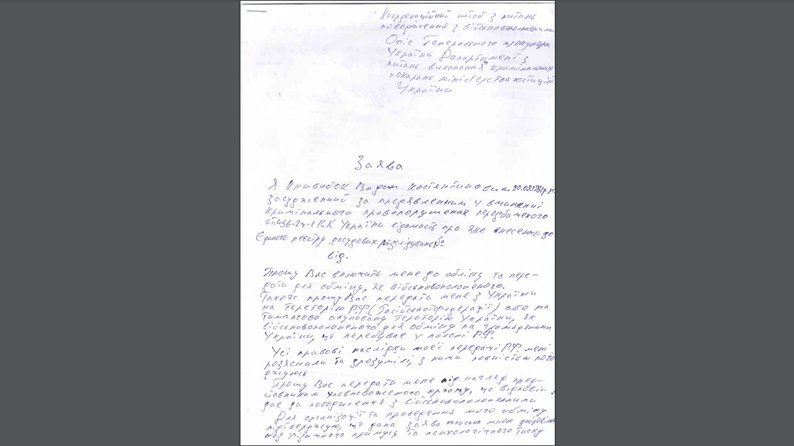 Координаційний штаб з питань
поводження з військовополоненими
Офіс Генерального прокурора
України Департамент з
питань виконання кримінальних
покарань міністерства юстиції
України
Заява
Я Вадим Костянтинович
засуджений за пред'явленним у вчиненні
Кримінального правопорушення передбаченого
КК України відомость про яке внесено до
Єдиного реєстру досудових розслідувань №
від.
Прошу Вас включить мене до обміну та пере-
дати для обміну, як військовополоненого.
Також прошу Вас передати мене з України
на територію РФ (Російської Федерації) або на
тимчасово окуповану територію України, як
військовополоненого для обміну на громадянина
України, що перебуває у полоні РФ.
Усі правові наслідки моєї передачі РФ мені
роз'яснили та зрозумілі, з ними повністю пого
джуюсь
Прошу Вас передати мене під нагляд пред-
ставникам уповноваженого органу, що відпові-
дає за поводження з військовополоненими
Для організації та проведення мого обміну
підтверджую, що дана заява писана мною добровільно
без фізичного примусу та психологічного тиску